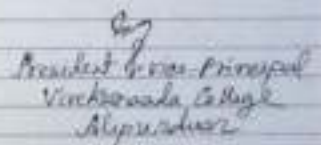 President & Vice-Principal
Vivekananda College
Alipurduar